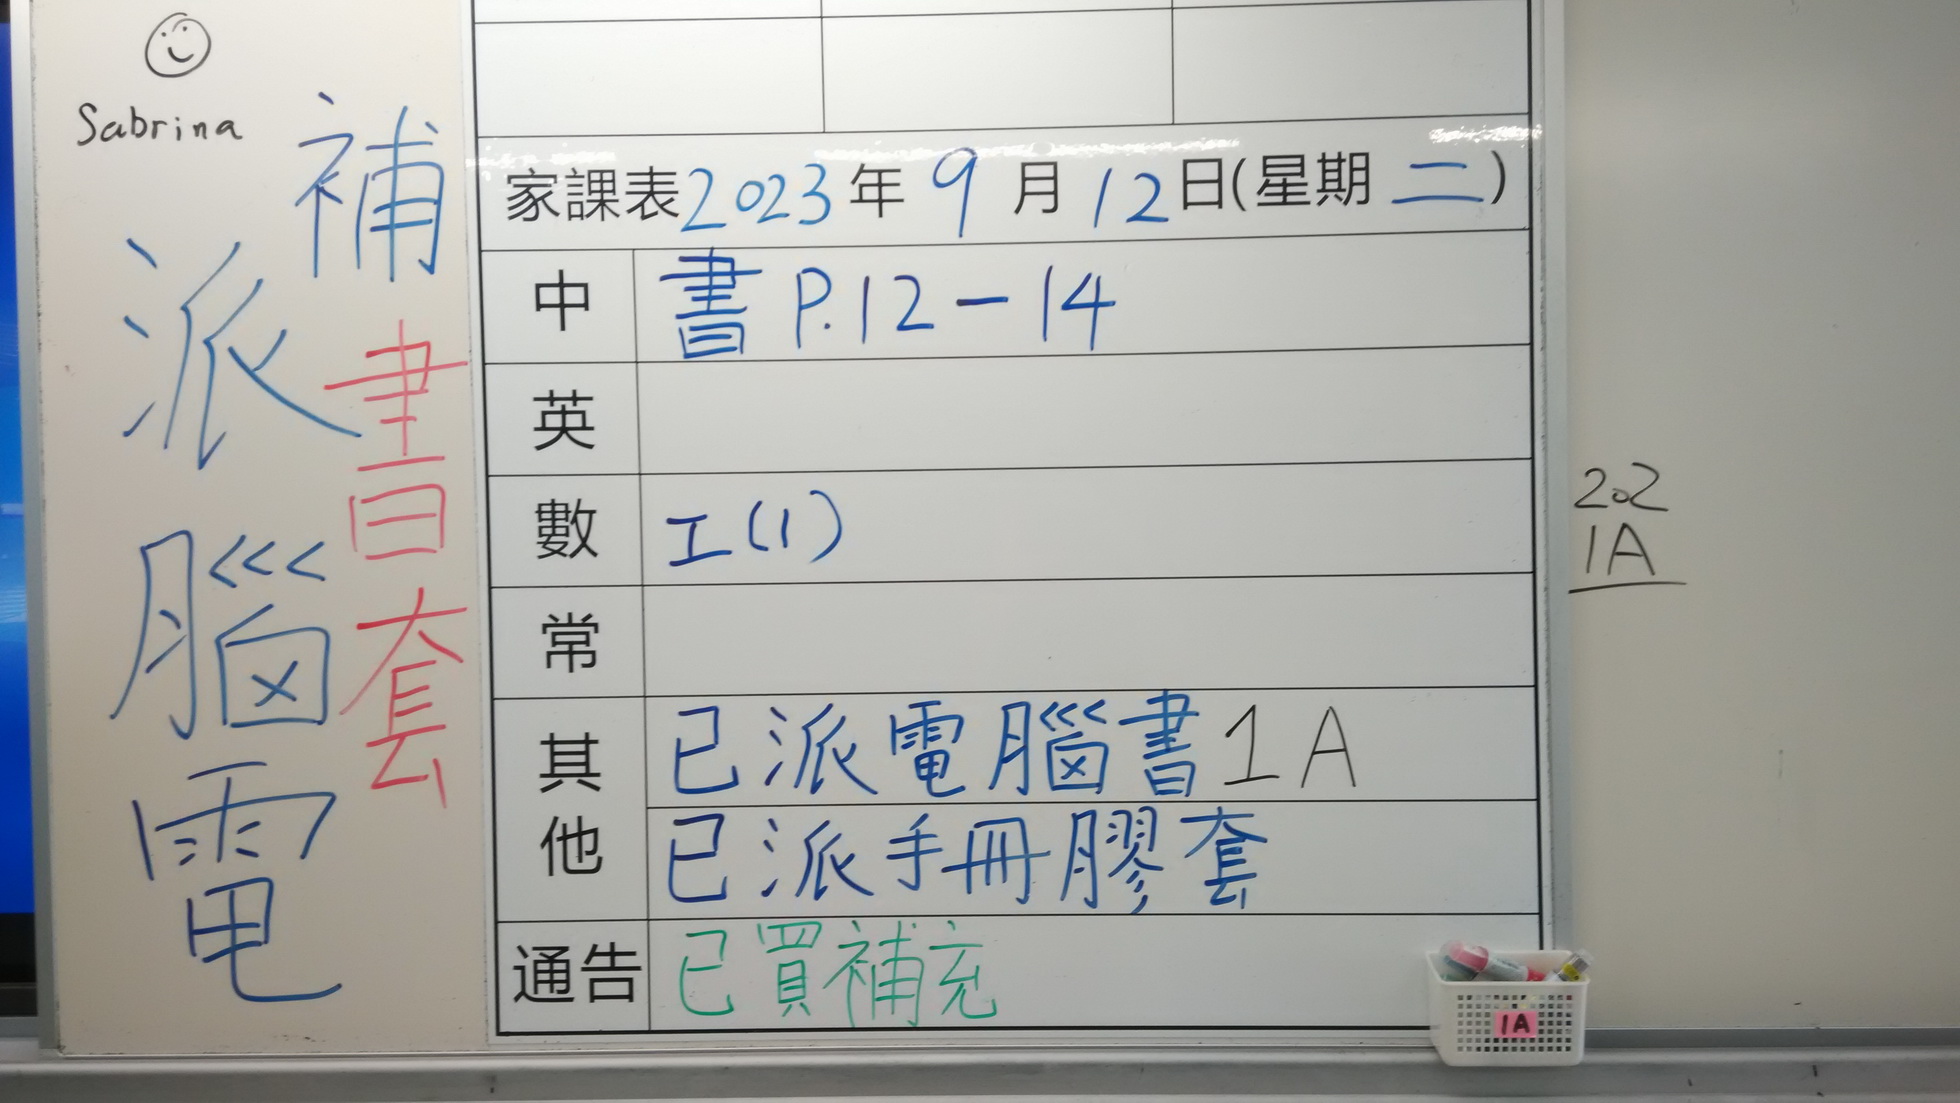 Sabrina
補書套
派腦電
家課表2023年9月12日(星期二)
中 書 P.12-14
英
數 工(1)
常
其他 已派電腦書1A
已派手冊膠套
通告 已買補充
202
1A
1A